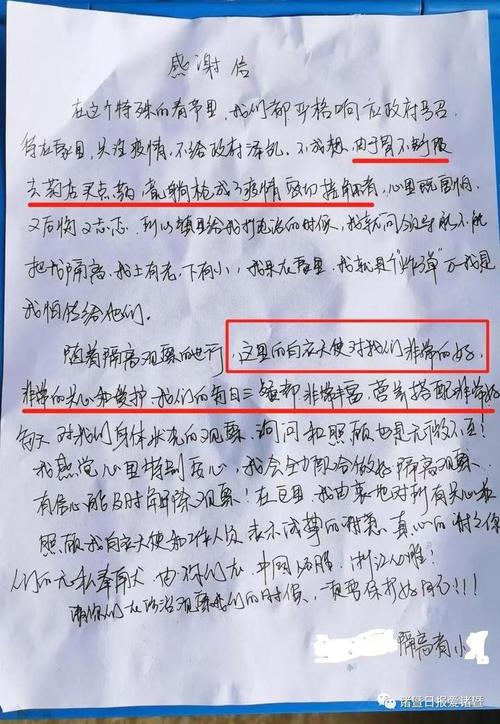 感谢信
在这个特殊的春节里，我们都严格响应政府号召
待在家里，关注疫情，不给政府添乱。不成想，由于胃不舒服
去药店买点药，竟躺枪成了疫情密切接触者，心里既害怕
又后悔又忐忑。到 镇里给我打电话的时候，我就问 能不能
把我隔离，我上有老，下有小，我呆在家里，我就是个"炸弹"万一我是
我怕传给他们。
随着隔离观察的进行，这里的白衣天使对我们非常的好，
非常的关心和爱护，我们的每日三餐都非常丰富，营养搭配非常好
每天对我们身体状况的观察、询问和照顾也是无微不至！
我感觉心里特别安心，我会全力配合做好隔离观察
有信心能及时解除观察！在这里，我由衷地对所有关心和
照顾我白衣天使和工作人员表示诚挚的谢意，真心的谢谢你
们的无私奉献，由你们在 中国必胜，浙江必胜！
请你们在 观察我们的时候，一定要保护好自己！！！
隔离者小
诸暨日报爱诸暨